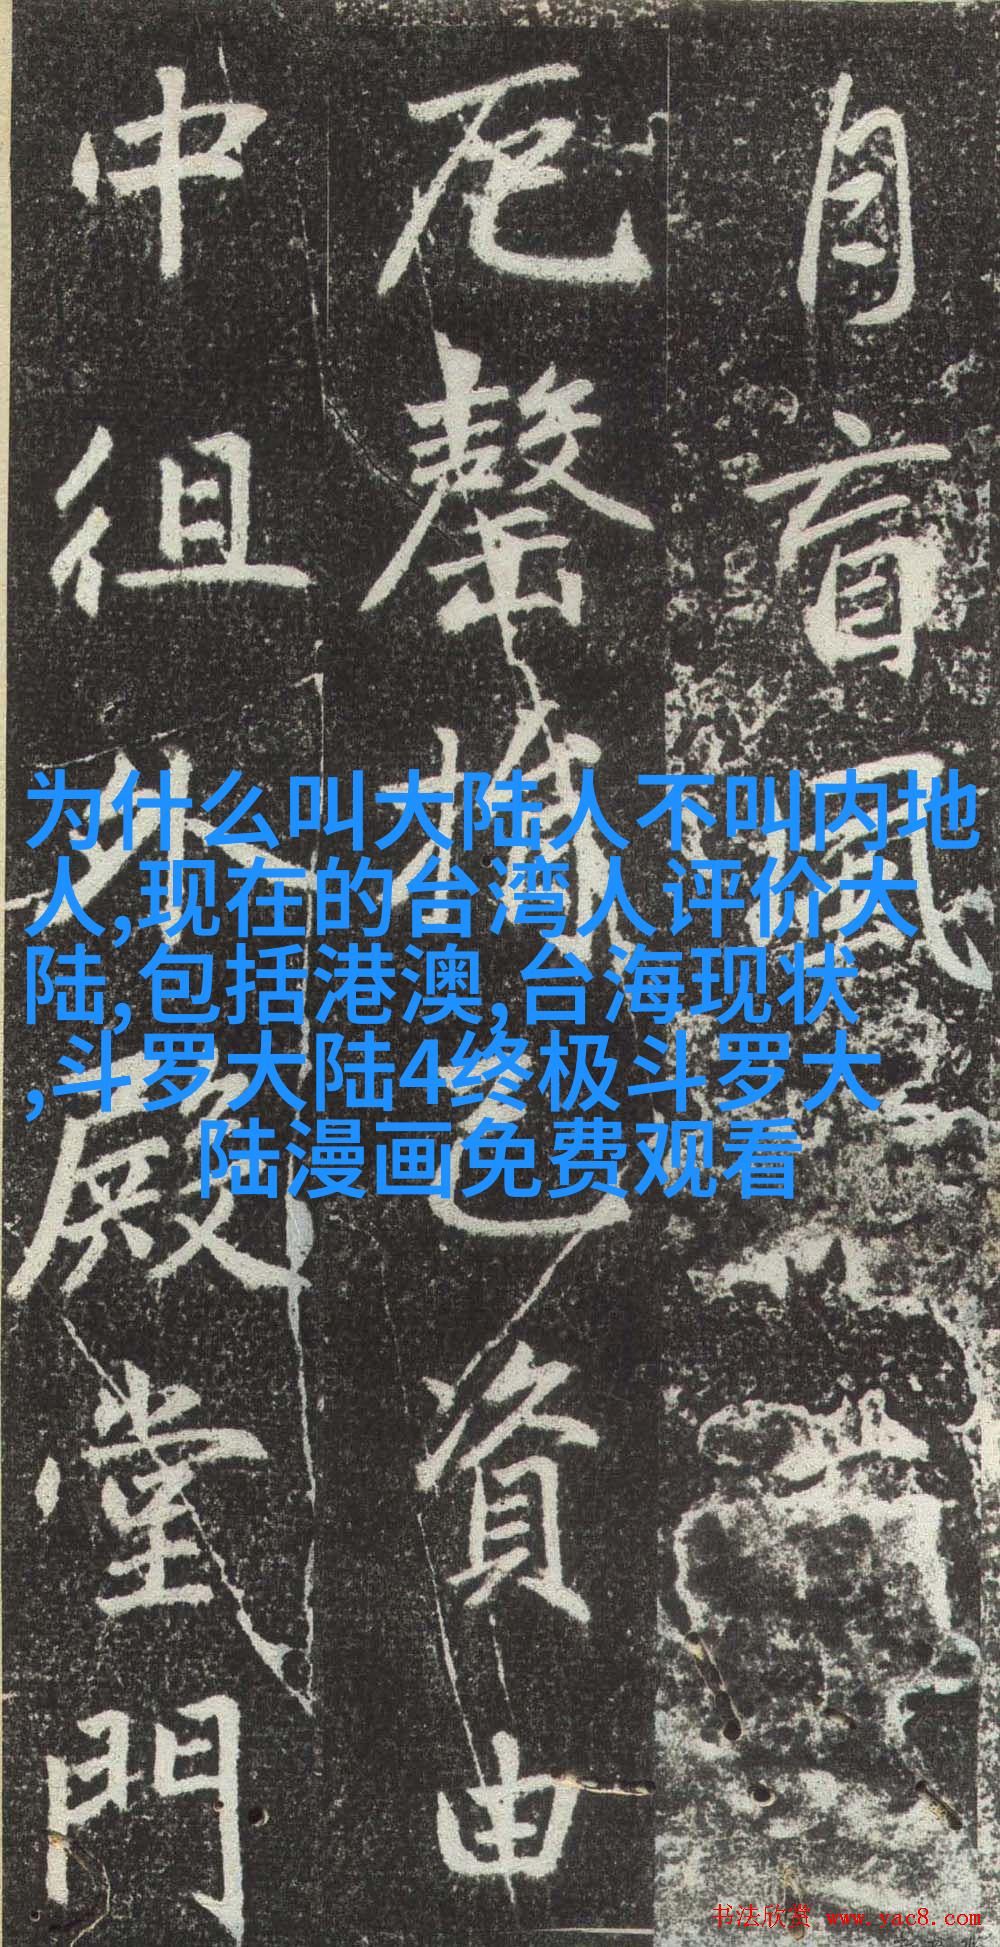 盲風
罄資由
中徂外殿堂門
为什么叫大陆人不叫内地
人,现在的台湾人评价大
陆,包括港澳,台海现状
,斗罗大陆4终极斗罗大
陆漫画免费观看
书法欣赏 www.yac8.com